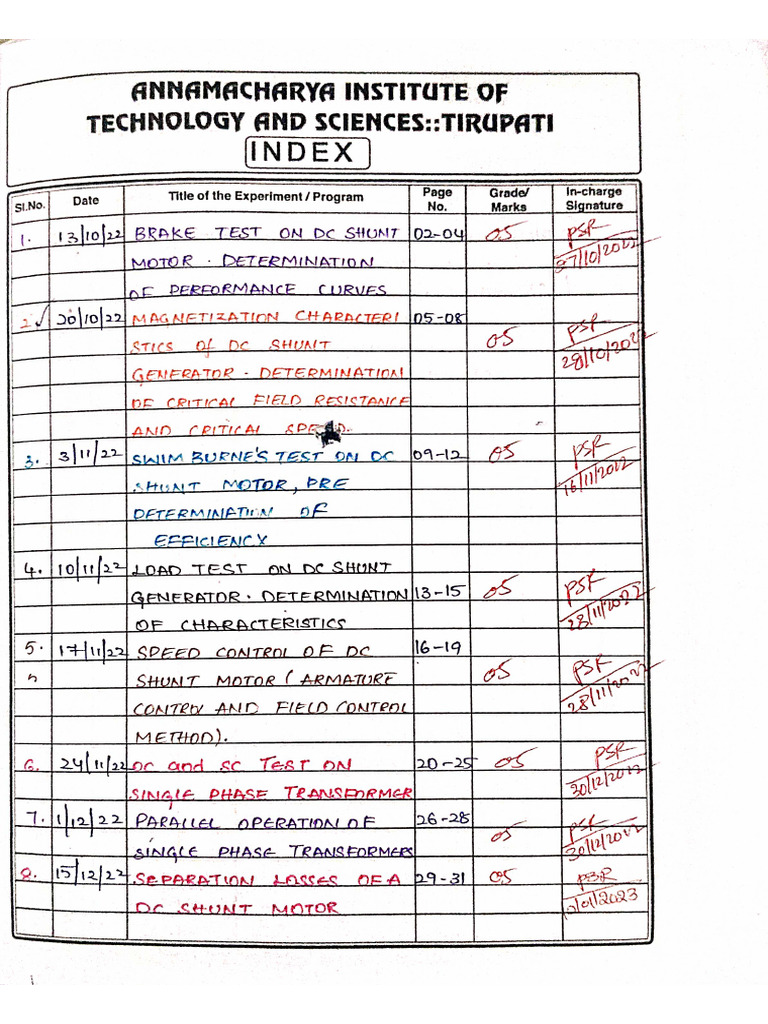 ANNAMACHARYA INSTITUTE OF
TECHNOLOGY AND SCIENCES::TIRUPATI
INDEX
Sl.No. Date Title of the Experiment / Program Page No. Grade/ Marks In-charge Signature
1. 13/10/22 BRAKE TEST ON DC SHUNT 02-04 05 PSR
MOTOR. DETERMINATION 27/10/2022
OF PERFORMANCE CURVES
2 20/10/22 MAGNETIZATION CHARACTERI 05-08
STICS of DC SHUNT 05 PSR
GENERATOR. DETERMINATION 28/10/2022
OF CRITICAL FIELD RESISTANCE
AND CRITICAL SPEED.
3. 3/11/22 SWIM BURNE'S TEST ON DC 09-12 05 PSR
SHUNT MOTOR, PRE 16/11/2022
DETERMINATION OF
EFFICIENCY
4. 10/11/22 LOAD TEST ON DC SHUNT
GENERATOR. DETERMINATION 13-15 05 PSR
OF CHARACTERISTICS 28/11/2022
5. 17/11/22 SPEED CONTROL OF DC 16-19
SHUNT MOTOR (ARMATURE 05 PSR
CONTROL AND FIELD CONTROL 28/11/2022
METHOD).
6. 24/11/22 OC and SC TEST ON 20-25 05 PSR
SINGLE PHASE TRANSFORMER 30/12/2022
7. 1/12/22 PARALLEL OPERATION OF 26-28
SINGLE PHASE TRANSFORMERS 05 PSR 30/12/2022
8. 15/12/22 SEPARATION LOSSES OF A 29-31 05 PSR
DC SHUNT MOTOR 10/01/2023